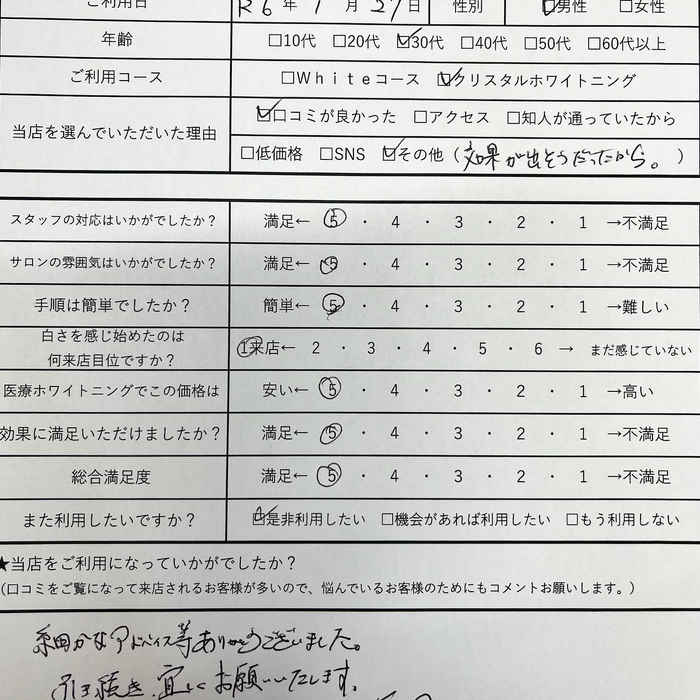 ご利用日 R6 年 1 月 27 日 性別 □男性 □女性
年齢 □10代 □20代 ☑30代 □40代 □50代 □60代以上
ご利用コース □Whiteコース ☑クリスタルホワイトニング
当店を選んでいただいた理由 ☑口コミが良かった □アクセス □知人が通っていたから
□低価格 □SNS ☑その他（効果が出そうだったから。）
スタッフの対応はいかがでしたか？ 満足← 5 ・ 4 ・ 3 ・ 2 ・ 1 →不満足
サロンの雰囲気はいかがでしたか？ 満足← 5 ・ 4 ・ 3 ・ 2 ・ 1 →不満足
手順は簡単でしたか？ 簡単← 5 ・ 4 ・ 3 ・ 2 ・ 1 →難しい
白さを感じ始めたのは
何来店目位ですか？ 1来店← 2 ・ 3 ・ 4 ・ 5 ・ 6 → まだ感じていない
医療ホワイトニングでこの価格は 安い← 5 ・ 4 ・ 3 ・ 2 ・ 1 →高い
効果に満足いただけましたか？ 満足← 5 ・ 4 ・ 3 ・ 2 ・ 1 →不満足
総合満足度 満足← 5 ・ 4 ・ 3 ・ 2 ・ 1 →不満足
また利用したいですか？ ☑是非利用したい □機会があれば利用したい □もう利用しない
★当店をご利用になっていかがでしたか？
(口コミをご覧になって来店されるお客様が多いので、悩んでいるお客様のためにもコメントお願いします。)
細田かなアドバイス等ありがとうございました。
引き続き、宜しくお願いいたします。